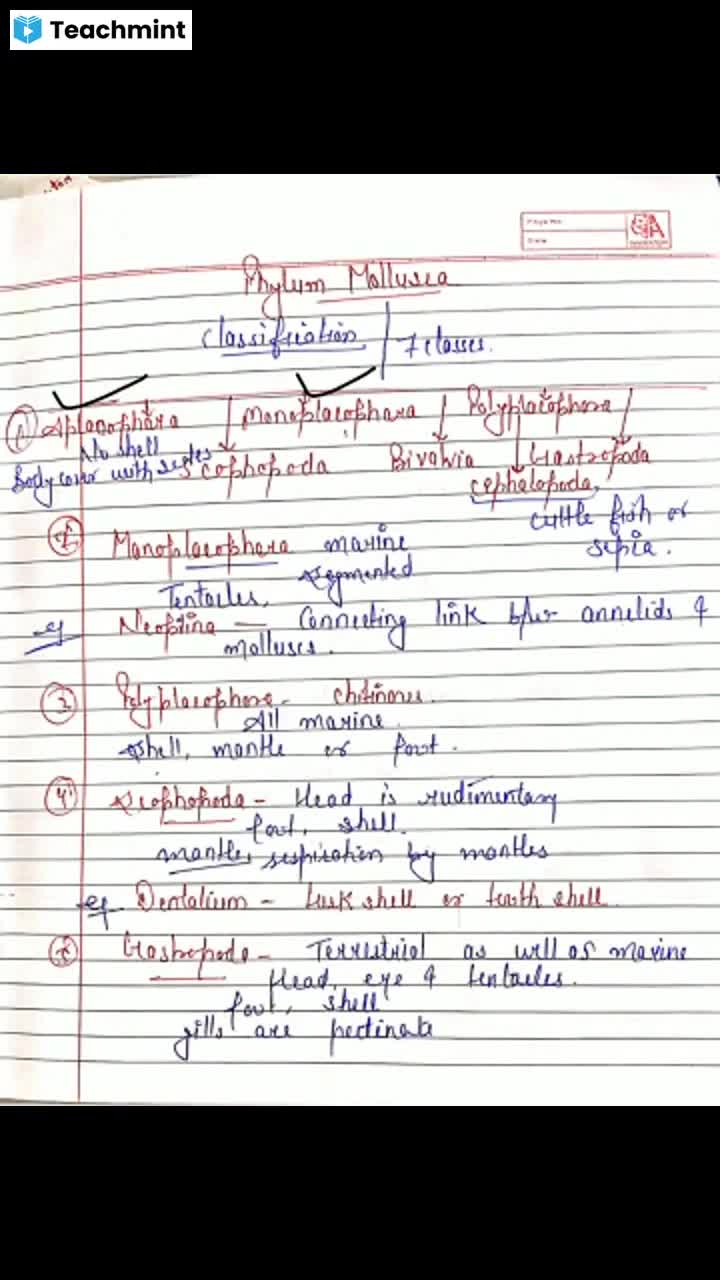 Teachmint
Phylum Mollusca
Classification | 7 classes.
① Aplacophora Monoplacophora Polyplacophora
No shell
Body cover with scales Scaphopoda Bivalvia Gastropoda
cephalopoda,
cuttle fish or
sepia.
② Monoplacophora marine
Tentacles, segmented
eg Neopilina — Connecting link b/w annelids &
molluscs.
③ Polyplacophora - chitinous.
All marine.
shell, mantle or foot.
④ Scaphopoda - Head is rudimentary
foot, shell.
mantle, respiration by mantles
eg Dentalium - tusk shell or tooth shell.
Gastropoda - Terrestrial as well as marine
Head, eye & tentacles.
foot, shell
gills are pectinate